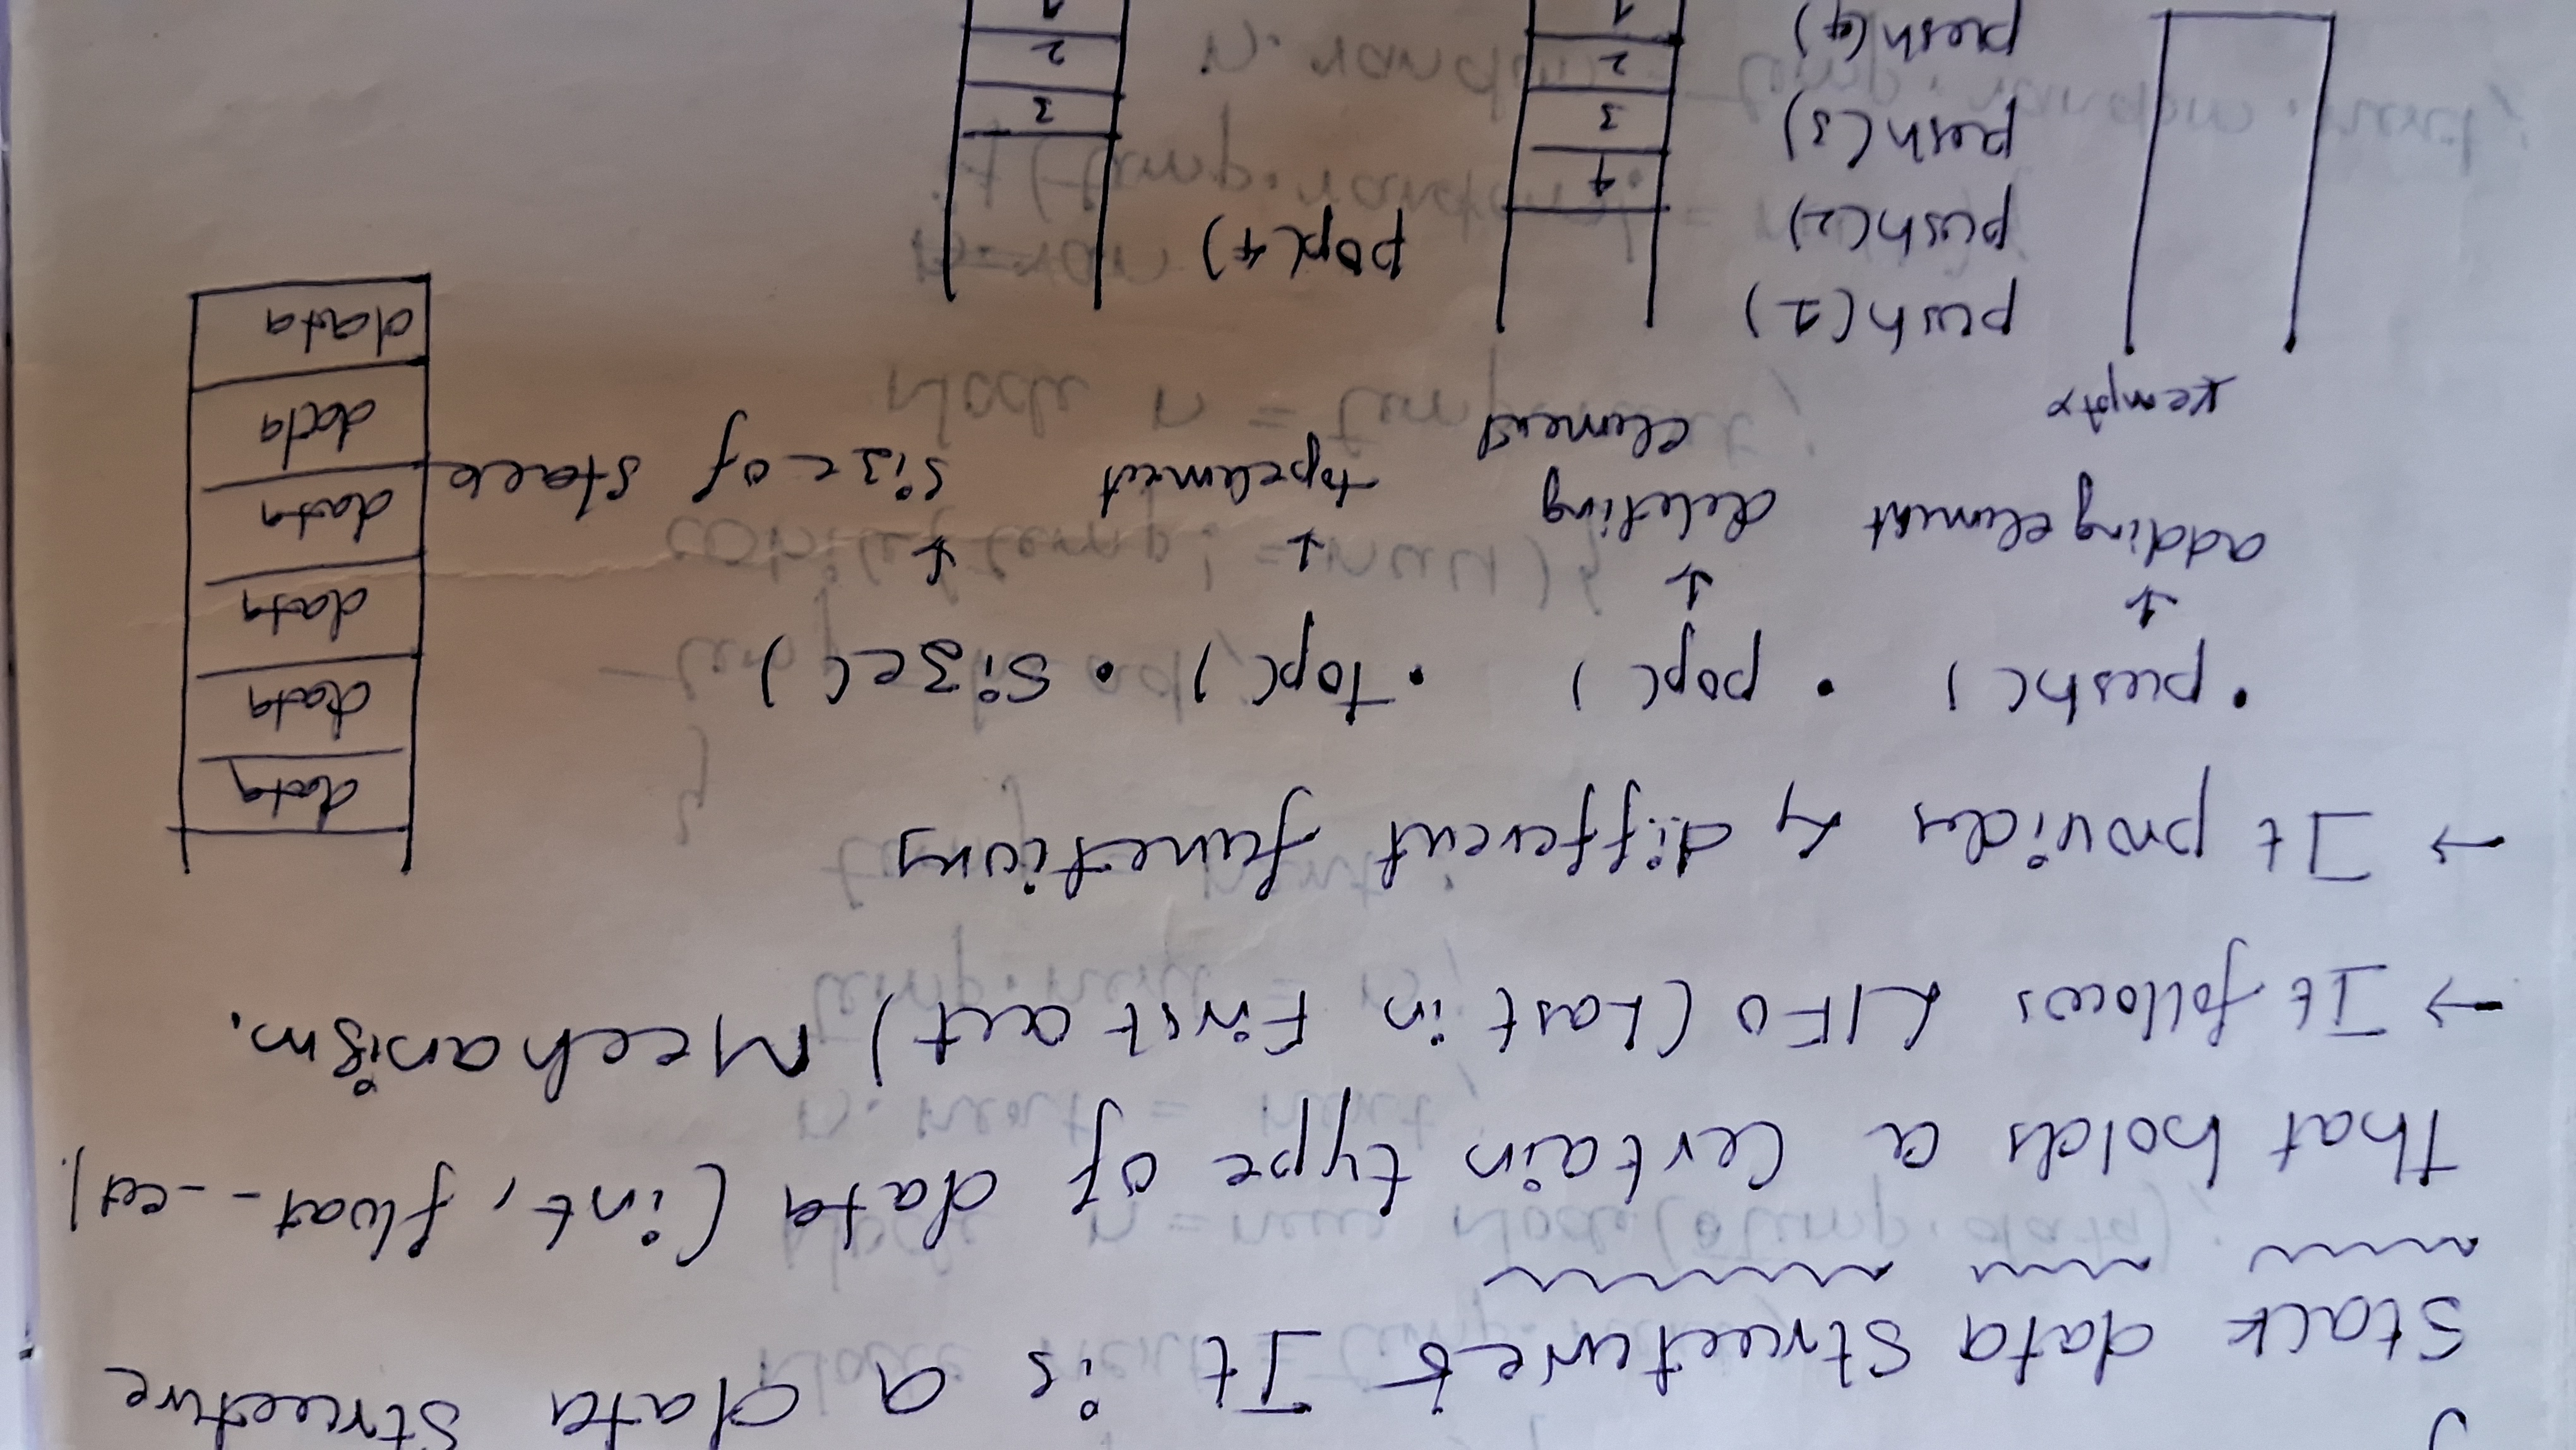 Stack data Structure It is a data Structure
That holds a Certain type of data (int, float--ect).
→ It follows LIFO (Last in First out) Mechanism.
→ It provides 4 different functions
• push() • pop() • Top() • Size()
↓ ↓ ↓ ↓
adding element deleting element topelement size of stack
data
data
data
data
data
data
empty
push(1)
push(2)
push(3)
push(4)
4
3
2
1
pop(4)
3
2
1